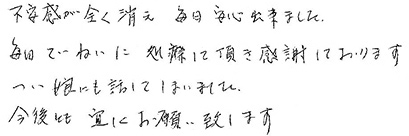 不安感が全く消え 毎日安心出来ました。
毎日ていねいに処療して頂き感謝しております
つい娘にも話してしまいました。
今後とも宜しくお願い致します